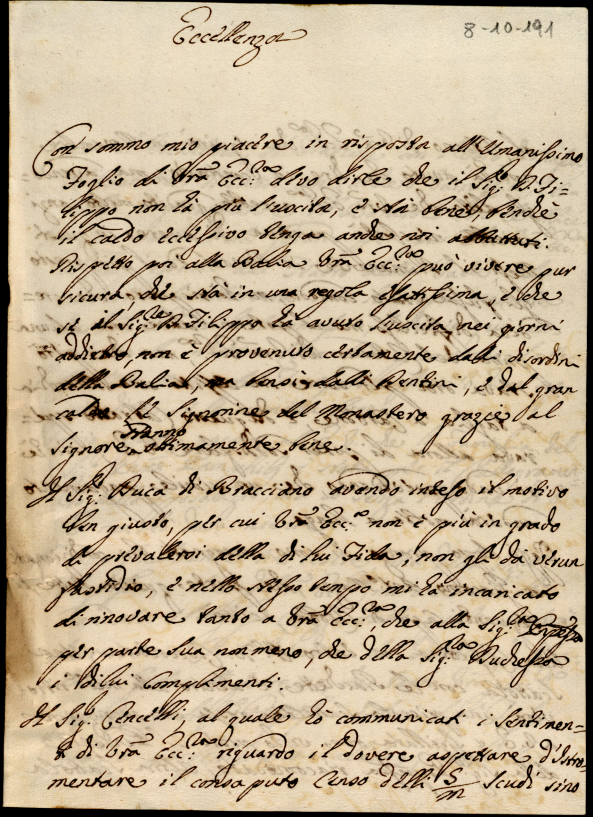 8-10-191
Eccellenza
Con sommo mio piacere in risposta all'Umanissimo
Foglio di Vrã Ecc:za devo dirle che il Sig: D. Fi-
lippo non hà più l'uscita, e stà bene, benchè
il caldo eccessivo tenga anche noi abbattuti.
Rispetto poi alla Balia Vrã Ecc:za può vivere pur
sicura, che stà in una regola esatissima, e che
se il Sig:re D. Filippo hà avuto l'uscita nei giorni
addietro, non è provenuto certamente dalli disordini
della Balia, ma bensì dalli Dentini, e dal gran
caldo. Le Signorine del Monastero grazie al
Signore stanno ottimamente bene.
Il Sig: Duca di Bracciano avendo inteso il motivo
ben giusto, per cui Vrã Ecc:a non è più in grado
di prevalersi della di lui Fida, non gli dà verun
fastidio, e nello stesso tempo mi hà incaricato
di rinovare tanto a Vrã Ecc:za, che alla Sig:ra
per parte Sua non meno, che della Sig:ra Duchessa
i di lui Complimenti.
Il Sig: Cencelli, al quale hò communicati i Sentimen-
ti di Vrã Ecc:za riguardo il dovere aspettare d'Istro-
mentare il consaputo Censo delli 5/m Scudi sino